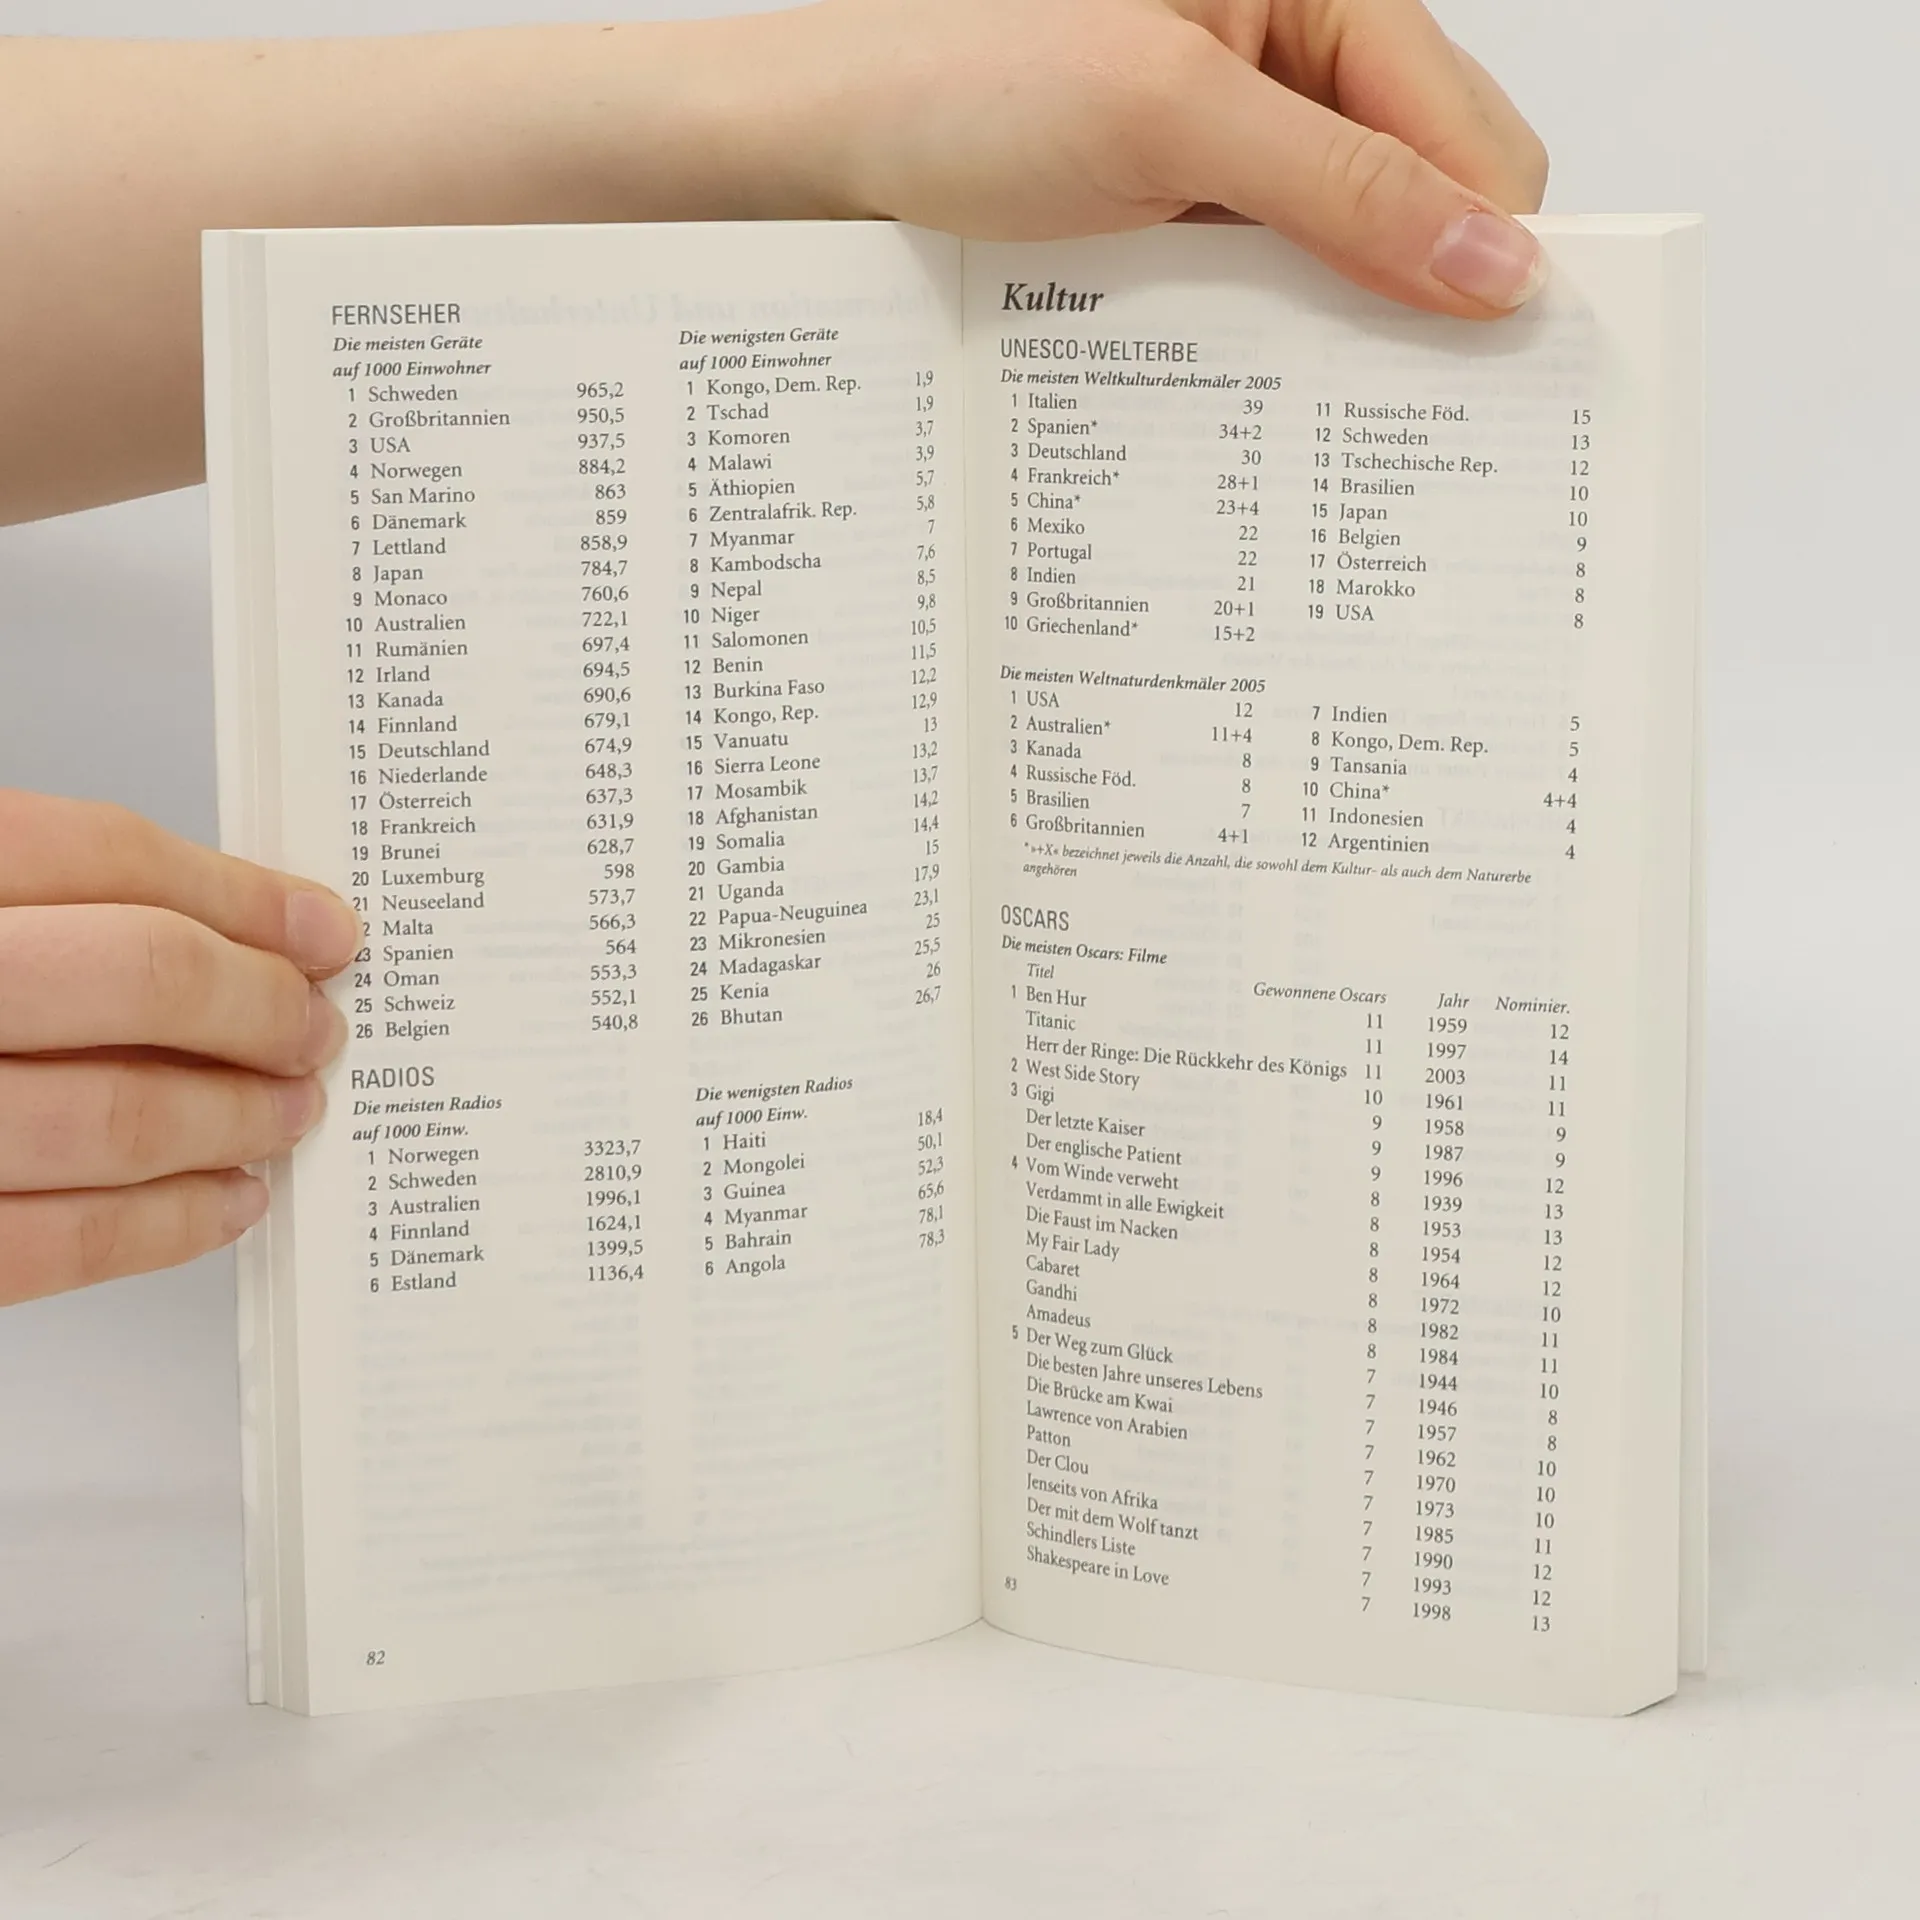 FERNSEHER
Die meisten Geräte
auf 1000 Einwohner
1 Schweden 965,2
2 Großbritannien 950,5
3 USA 937,5
4 Norwegen 884,2
5 San Marino 863
6 Dänemark 859
7 Lettland 858,9
8 Japan 784,7
9 Monaco 760,6
10 Australien 722,1
11 Rumänien 697,4
12 Irland 694,5
13 Kanada 690,6
14 Finnland 679,1
15 Deutschland 674,9
16 Niederlande 648,3
17 Österreich 637,3
18 Frankreich 631,9
19 Brunei 628,7
20 Luxemburg 598
21 Neuseeland 573,7
2 Malta 566,3
23 Spanien 564
24 Oman 553,3
25 Schweiz 552,1
26 Belgien 540,8
Die wenigsten Geräte
auf 1000 Einwohner
1 Kongo, Dem. Rep. 1,9
2 Tschad 1,9
3 Komoren 3,7
4 Malawi 3,9
5 Äthiopien 5,7
6 Zentralafrik. Rep. 5,8
7 Myanmar 7
8 Kambodscha 7,6
9 Nepal 8,5
10 Niger 9,8
11 Salomonen 10,5
12 Benin 11,5
13 Burkina Faso 12,2
14 Kongo, Rep. 12,9
15 Vanuatu 13
16 Sierra Leone 13,2
17 Mosambik 13,7
18 Afghanistan 14,2
19 Somalia 14,4
20 Gambia 15
21 Uganda 17,9
22 Papua-Neuguinea 23,1
23 Mikronesien 25
24 Madagaskar 25,5
25 Kenia 26
26 Bhutan 26,7
RADIOS
Die meisten Radios
auf 1000 Einw.
1 Norwegen 3323,7
2 Schweden 2810,9
3 Australien 1996,1
4 Finnland 1624,1
5 Dänemark 1399,5
6 Estland 1136,4
Die wenigsten Radios
auf 1000 Einw.
1 Haiti 18,4
2 Mongolei 50,1
3 Guinea 52,3
4 Myanmar 65,6
5 Bahrain 78,1
6 Angola 78,3
82
Kultur
UNESCO-WELTERBE
Die meisten Weltkulturdenkmäler 2005
1 Italien 39
2 Spanien* 34+2
3 Deutschland 30
4 Frankreich* 28+1
5 China* 23+4
6 Mexiko 22
7 Portugal 22
8 Indien 21
9 Großbritannien 20+1
10 Griechenland* 15+2
11 Russische Föd. 15
12 Schweden 13
13 Tschechische Rep. 12
14 Brasilien 10
15 Japan 10
16 Belgien 9
17 Österreich 8
18 Marokko 8
19 USA 8
Die meisten Weltnaturdenkmäler 2005
1 USA 12
2 Australien* 11+4
3 Kanada 8
4 Russische Föd. 8
5 Brasilien 7
6 Großbritannien 4+1
7 Indien 5
8 Kongo, Dem. Rep. 5
9 Tansania 4
10 China* 4+4
11 Indonesien 4
12 Argentinien 4
*»+X« bezeichnet jeweils die Anzahl, die sowohl dem Kultur- als auch dem Naturerbe
angehören
OSCARS
Die meisten Oscars: Filme
Titel Gewonnene Oscars Jahr Nominier.
1 Ben Hur 11 1959 12
Titanic 11 1997 14
Herr der Ringe: Die Rückkehr des Königs 11 2003 11
2 West Side Story 10 1961 11
3 Gigi 9 1958 9
Der letzte Kaiser 9 1987 9
Der englische Patient 9 1996 12
4 Vom Winde verweht 8 1939 13
Verdammt in alle Ewigkeit 8 1953 13
Die Faust im Nacken 8 1954 12
My Fair Lady 8 1964 12
Cabaret 8 1972 10
Gandhi 8 1982 11
Amadeus 8 1984 11
5 Der Weg zum Glück 7 1944 10
Die besten Jahre unseres Lebens 7 1946 8
Die Brücke am Kwai 7 1957 8
Lawrence von Arabien 7 1962 10
Patton 7 1970 10
Der Clou 7 1973 10
Jenseits von Afrika 7 1985 11
Der mit dem Wolf tanzt 7 1990 12
Schindlers Liste 7 1993 12
Shakespeare in Love 7 1998 13
83